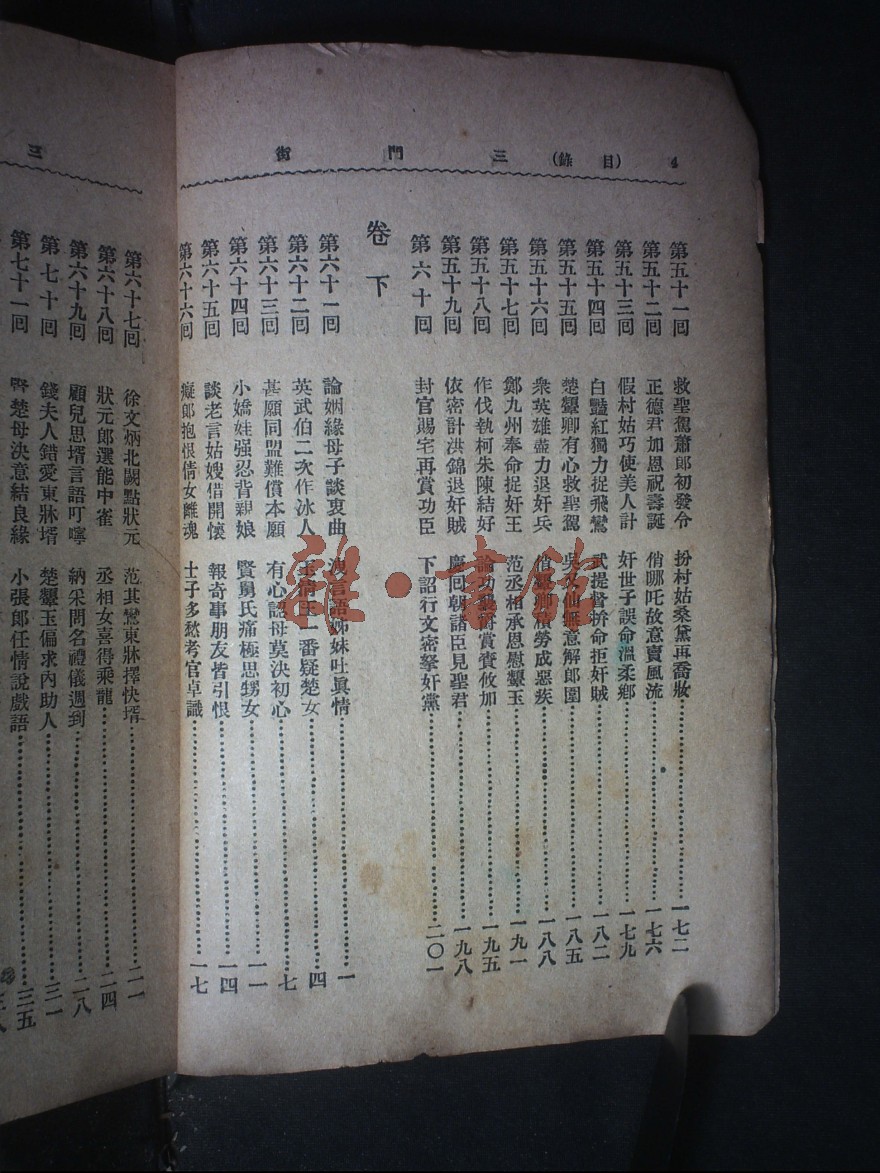 4 (目錄) 三門街
第五十一回 救聖駕蕭郎初發令 扮村姑桑黛再喬妝 一七二
第五十二回 正德君加恩祝壽誕 俏哪吒故意賣風流 一七六
第五十三回 假村姑巧使美人計 奸世子誤命溫柔鄉 一七九
第五十四回 白豔紅獨力捉飛鸞 武提督拚命拒奸賊 一八二
第五十五回 楚顰卿有心救聖駕 吳又仙無意解郎圍 一八五
第五十六回 衆英雄盡力退奸兵 俏顰卿積勞成惡疾 一八八
第五十七回 鄭九州奉命捉奸王 范丞相承恩慰顰玉 一九一
第五十八回 作伐執柯朱陳結好 論功 賞賚攸加 一九五
第五十九回 依密計洪錦退奸賊 慶回朝諸臣見聖君 一九八
第六十回 封官賜宅再賞功臣 下詔行文密拏奸黨 二〇一
卷下
第六十一回 論姻緣母子談衷曲 洩言語姊妹吐眞情 一
第六十二回 英武伯二次作冰人 玉情玉一番疑楚女 四
第六十三回 甚願同盟難償本願 有心認母莫決初心 七
第六十四回 小嬌娃强忍背親娘 賢舅氏痛極思甥女 一一
第六十五回 談老言姑嫂借開懷 報奇事朋友皆引恨 一四
第六十六回 癡郎抱恨倩女離魂 士子多愁考官卓識 一七
三
第六十七回 徐文炳北闕點狀元 范其鸞東牀擇快壻 二一
第六十八回 狀元郎選能中雀 丞相女喜得乘龍 二四
第六十九回 顧兒思壻言語叮嚀 納采問名禮儀週到 二八
第七十回 錢夫人錯愛東牀壻 楚顰玉偏求內助人 三一
第七十一回 楚母決意結良緣 小張郎任情說戲語 三五
三八
雜·書館